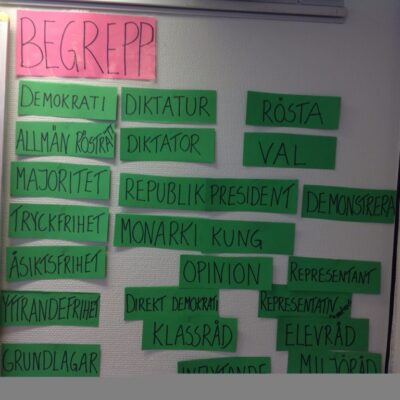 BEGREPP
DEMOKRATI DIKTATUR RÖSTA
ALLMÄN RÖSTRÄTT DIKTATOR VAL
MAJORITET REPUBLIK PRESIDENT DEMONSTRERA
TRYCKFRIHET MONARKI KUNG
ÅSIKTSFRIHET OPINION REPRESENTANT
YTTRANDEFRIHET DIREKT DEMOKRATI REPRESENTATIV
KLASSRÅD ELEVRÅD
GRUNDLAGAR INFLYTANDE MILJÖRÅD